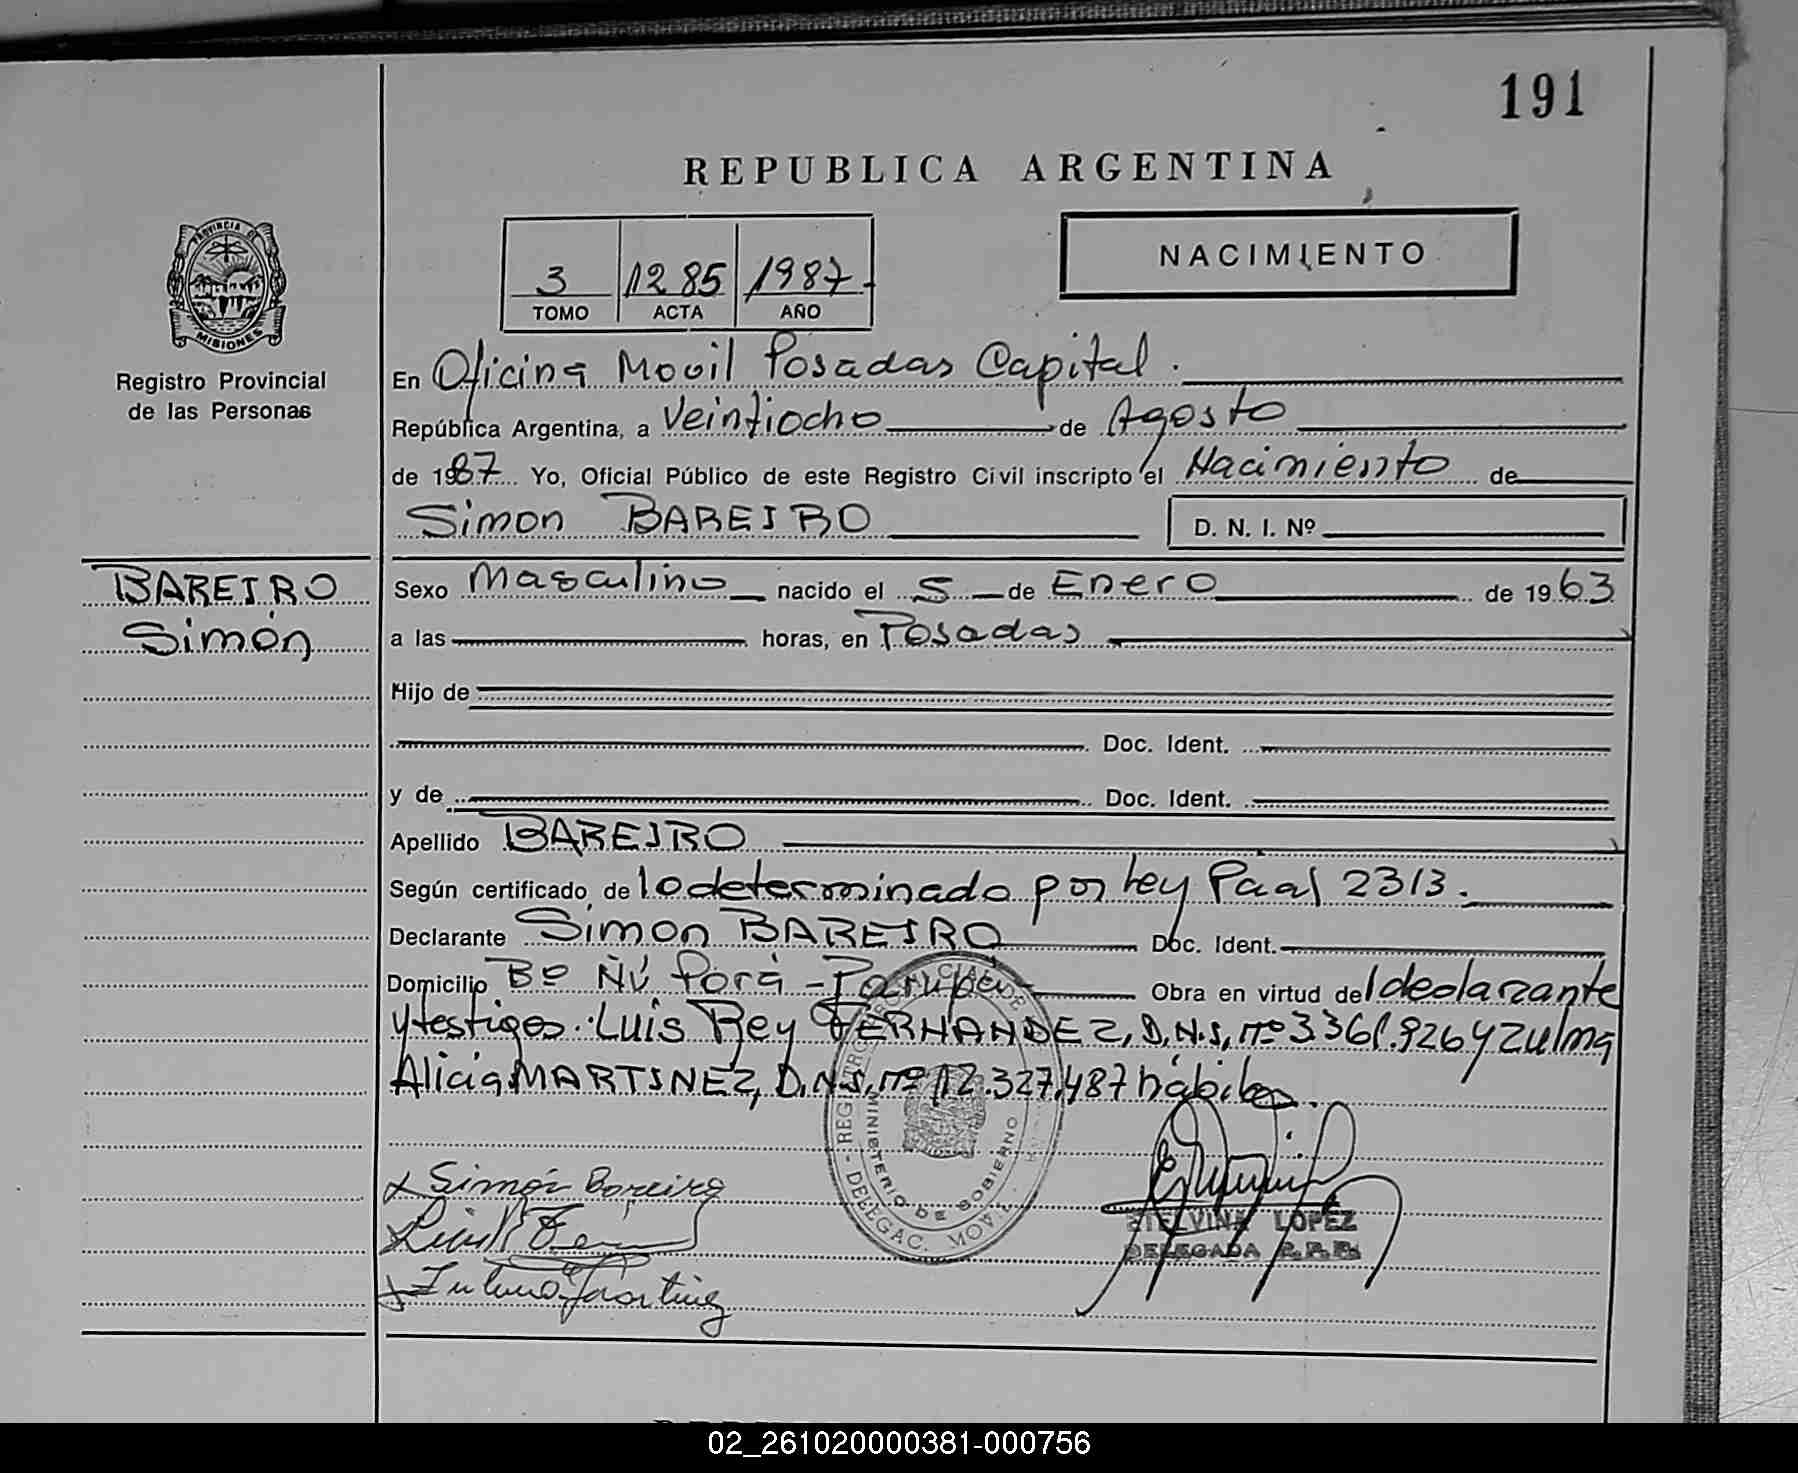 191
REPUBLICA ARGENTINA
PROVINCIA DE
MISIONES
Registro Provincial
de las Personas
3 1285 1987
TOMO ACTA AÑO
NACIMIENTO
En Oficina Movil Posadas Capital.
República Argentina, a Veintiocho de Agosto
de 1987 Yo, Oficial Público de este Registro Civil inscripto el Nacimiento de
Simon BAREIRO D. N. I. Nº
BAREIRO
Simón
Sexo Masculino nacido el 5 de Enero de 1963
a las horas, en Posadas
Hijo de
Doc. Ident.
y de Doc. Ident.
Apellido BAREIRO
Según certificado de lo determinado por Ley Pcial 2313.
Declarante Simon BAREIRO Doc. Ident.
Domicilio Bº Ñú Porá - Garupá Obra en virtud del declarante
y testigos: Luis Rey FERNANDEZ, D.N.I. nº 3.361.926 y Zulma
Alicia MARTINEZ, D.N.I. nº 12.327.487 hábiles.
REGISTRO PROVINCIAL DE
MINISTERIO DE GOBIERNO
DELEGAC. MOVIL
x Simón Boreiro
x Luis R Fer
x Zulma Martinez
ETELVINA LOPEZ
DELEGADA R.P.P.
02_261020000381-000756